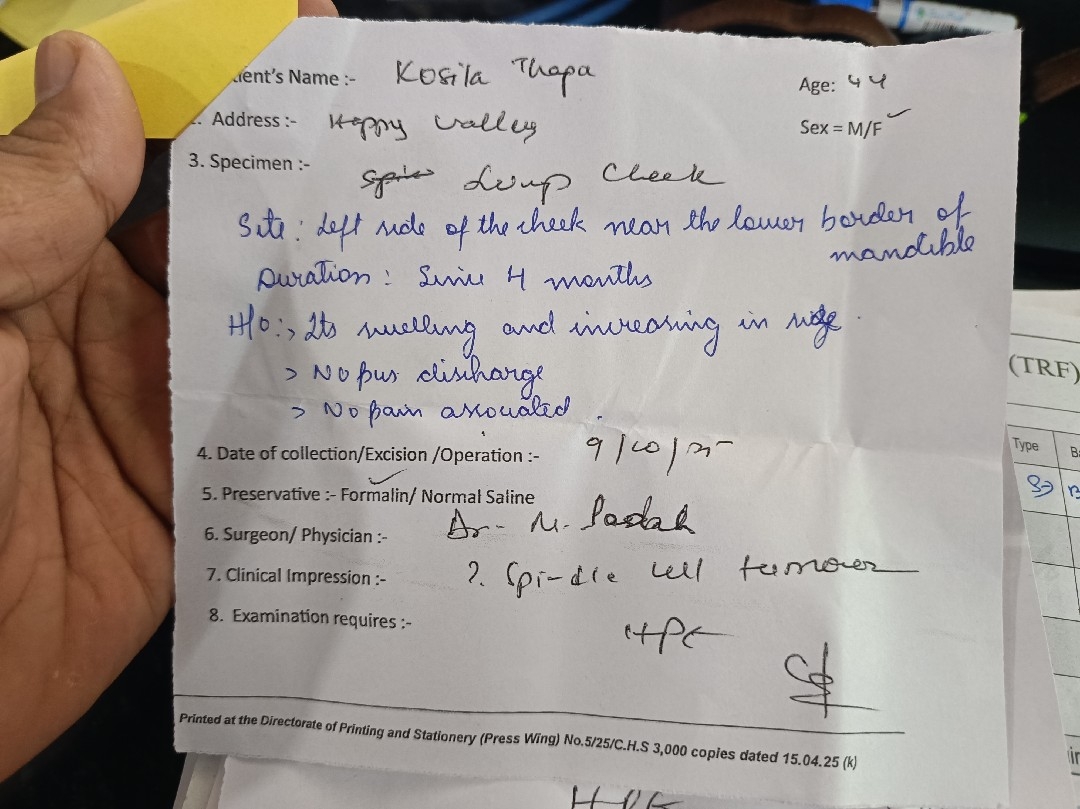 ient's Name :- Kosila Thapa
Age: 44
. Address :- Happy Valley
Sex = M/F
3. Specimen :-
Lump Cheek
Site: Left side of the cheek near the lower border of
mandible
Duration: Since 4 months
H/o :> Its swelling and increasing in size.
> No pus discharge
> No pain associated.
4. Date of collection/Excision /Operation :- 9/10/25
5. Preservative :- Formalin/ Normal Saline
6. Surgeon/ Physician :- Dr- M.
7. Clinical Impression :- ?. Spindle cell tumour
8. Examination requires :-
HPE
Printed at the Directorate of Printing and Stationery (Press Wing) No.5/25/C.H.S 3,000 copies dated 15.04.25 (k)
(TRF)
Type
HPE